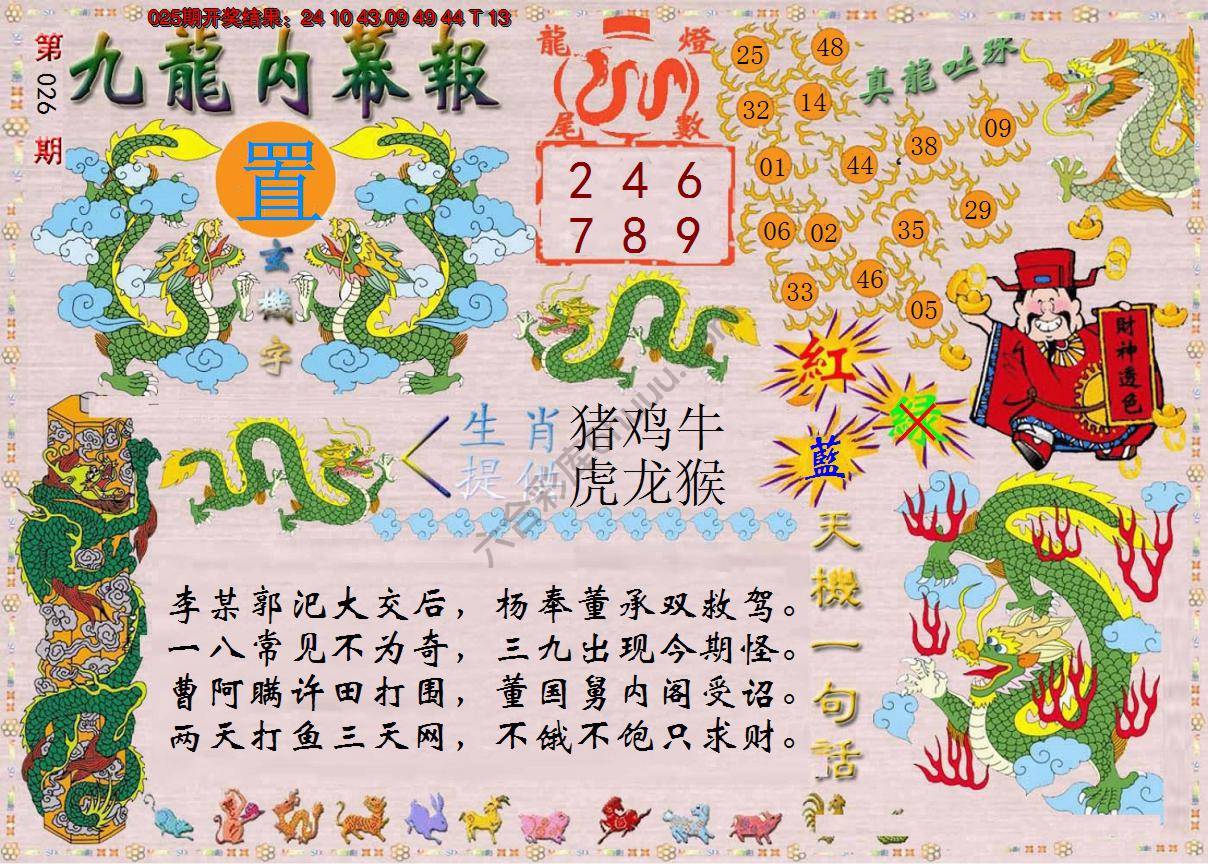 025期开奖结果：24 10 43 09 49 44 T 13
第026期
九龍内幕報
置
玄機字
龍燈尾數
2 4 6
7 8 9
真龍吐珠
25 48
32 14
01 44 38 09
06 02 35 29
33 46 05
財神透色
紅
綠
藍
生肖 猪鸡牛
提供 虎龙猴
李某郭汜大交后，杨奉董承双救驾。
一八常见不为奇，三九出现今期怪。
曹阿瞒许田打围，董国舅内阁受诏。
两天打鱼三天网，不饿不饱只求财。
天機一句話